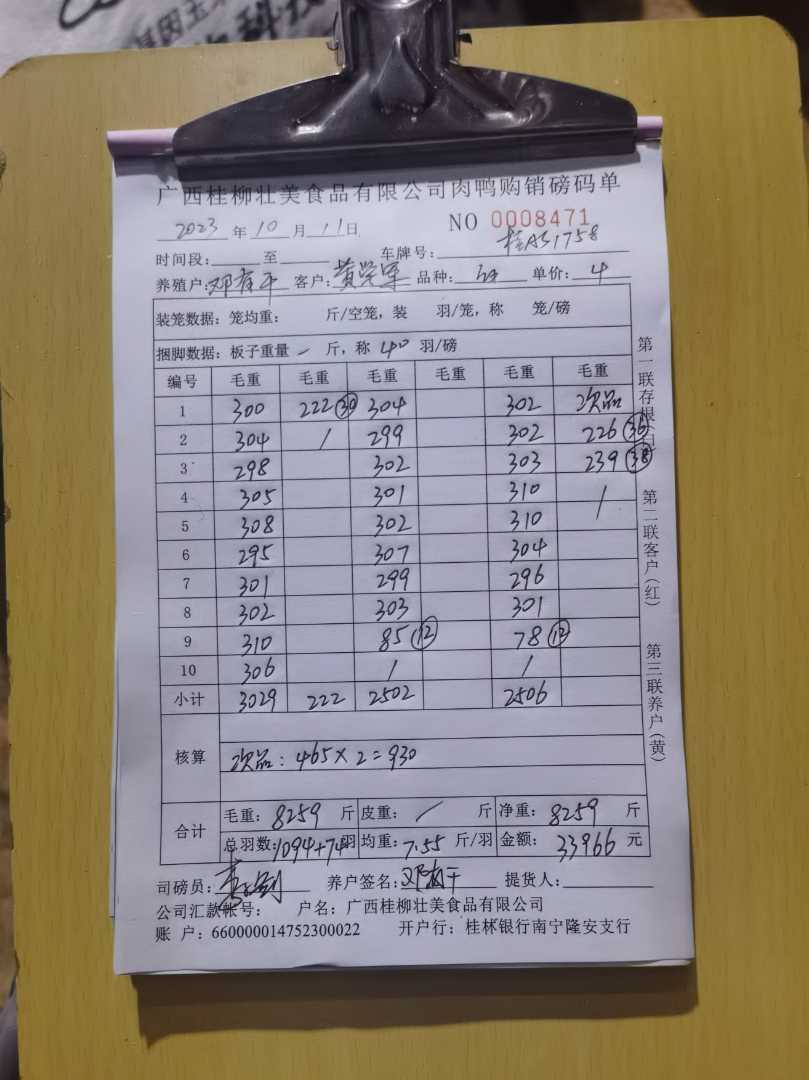 广西桂柳壮美食品有限公司肉鸭购销磅码单
2023 年 10 月 11 日 NO 0008471
时间段: 至 车牌号: 桂AS1758
养殖户: 邓有干 客户: 品种: 单价: 4
装笼数据: 笼均重: 斤/空笼, 装 羽/笼, 称 笼/磅
捆脚数据: 板子重量 / 斤, 称 40 羽/磅
编号 毛重 毛重 毛重 毛重 毛重 毛重
1 300 222 30 304 302 次品
2 304 / 299 302 226 36
3 298 302 303 239 38
4 305 301 310 /
5 308 302 310
6 295 307 304
7 301 299 296
8 302 303 301
9 310 85 12 78 12
10 306 / /
小计 3029 222 2502 2506
核算 次品: 465×2=930
合计 毛重: 8259 斤 皮重: / 斤 净重: 8259 斤
总羽数: 1094+74羽 均重: 7.55 斤/羽 金额: 33966 元
司磅员: 养户签名: 提货人:
公司汇款帐号: 户名: 广西桂柳壮美食品有限公司
账 户: 660000014752300022 开户行: 桂林银行南宁隆安支行
第一联存根(白)
第二联客户(红)
第三联养户(黄)